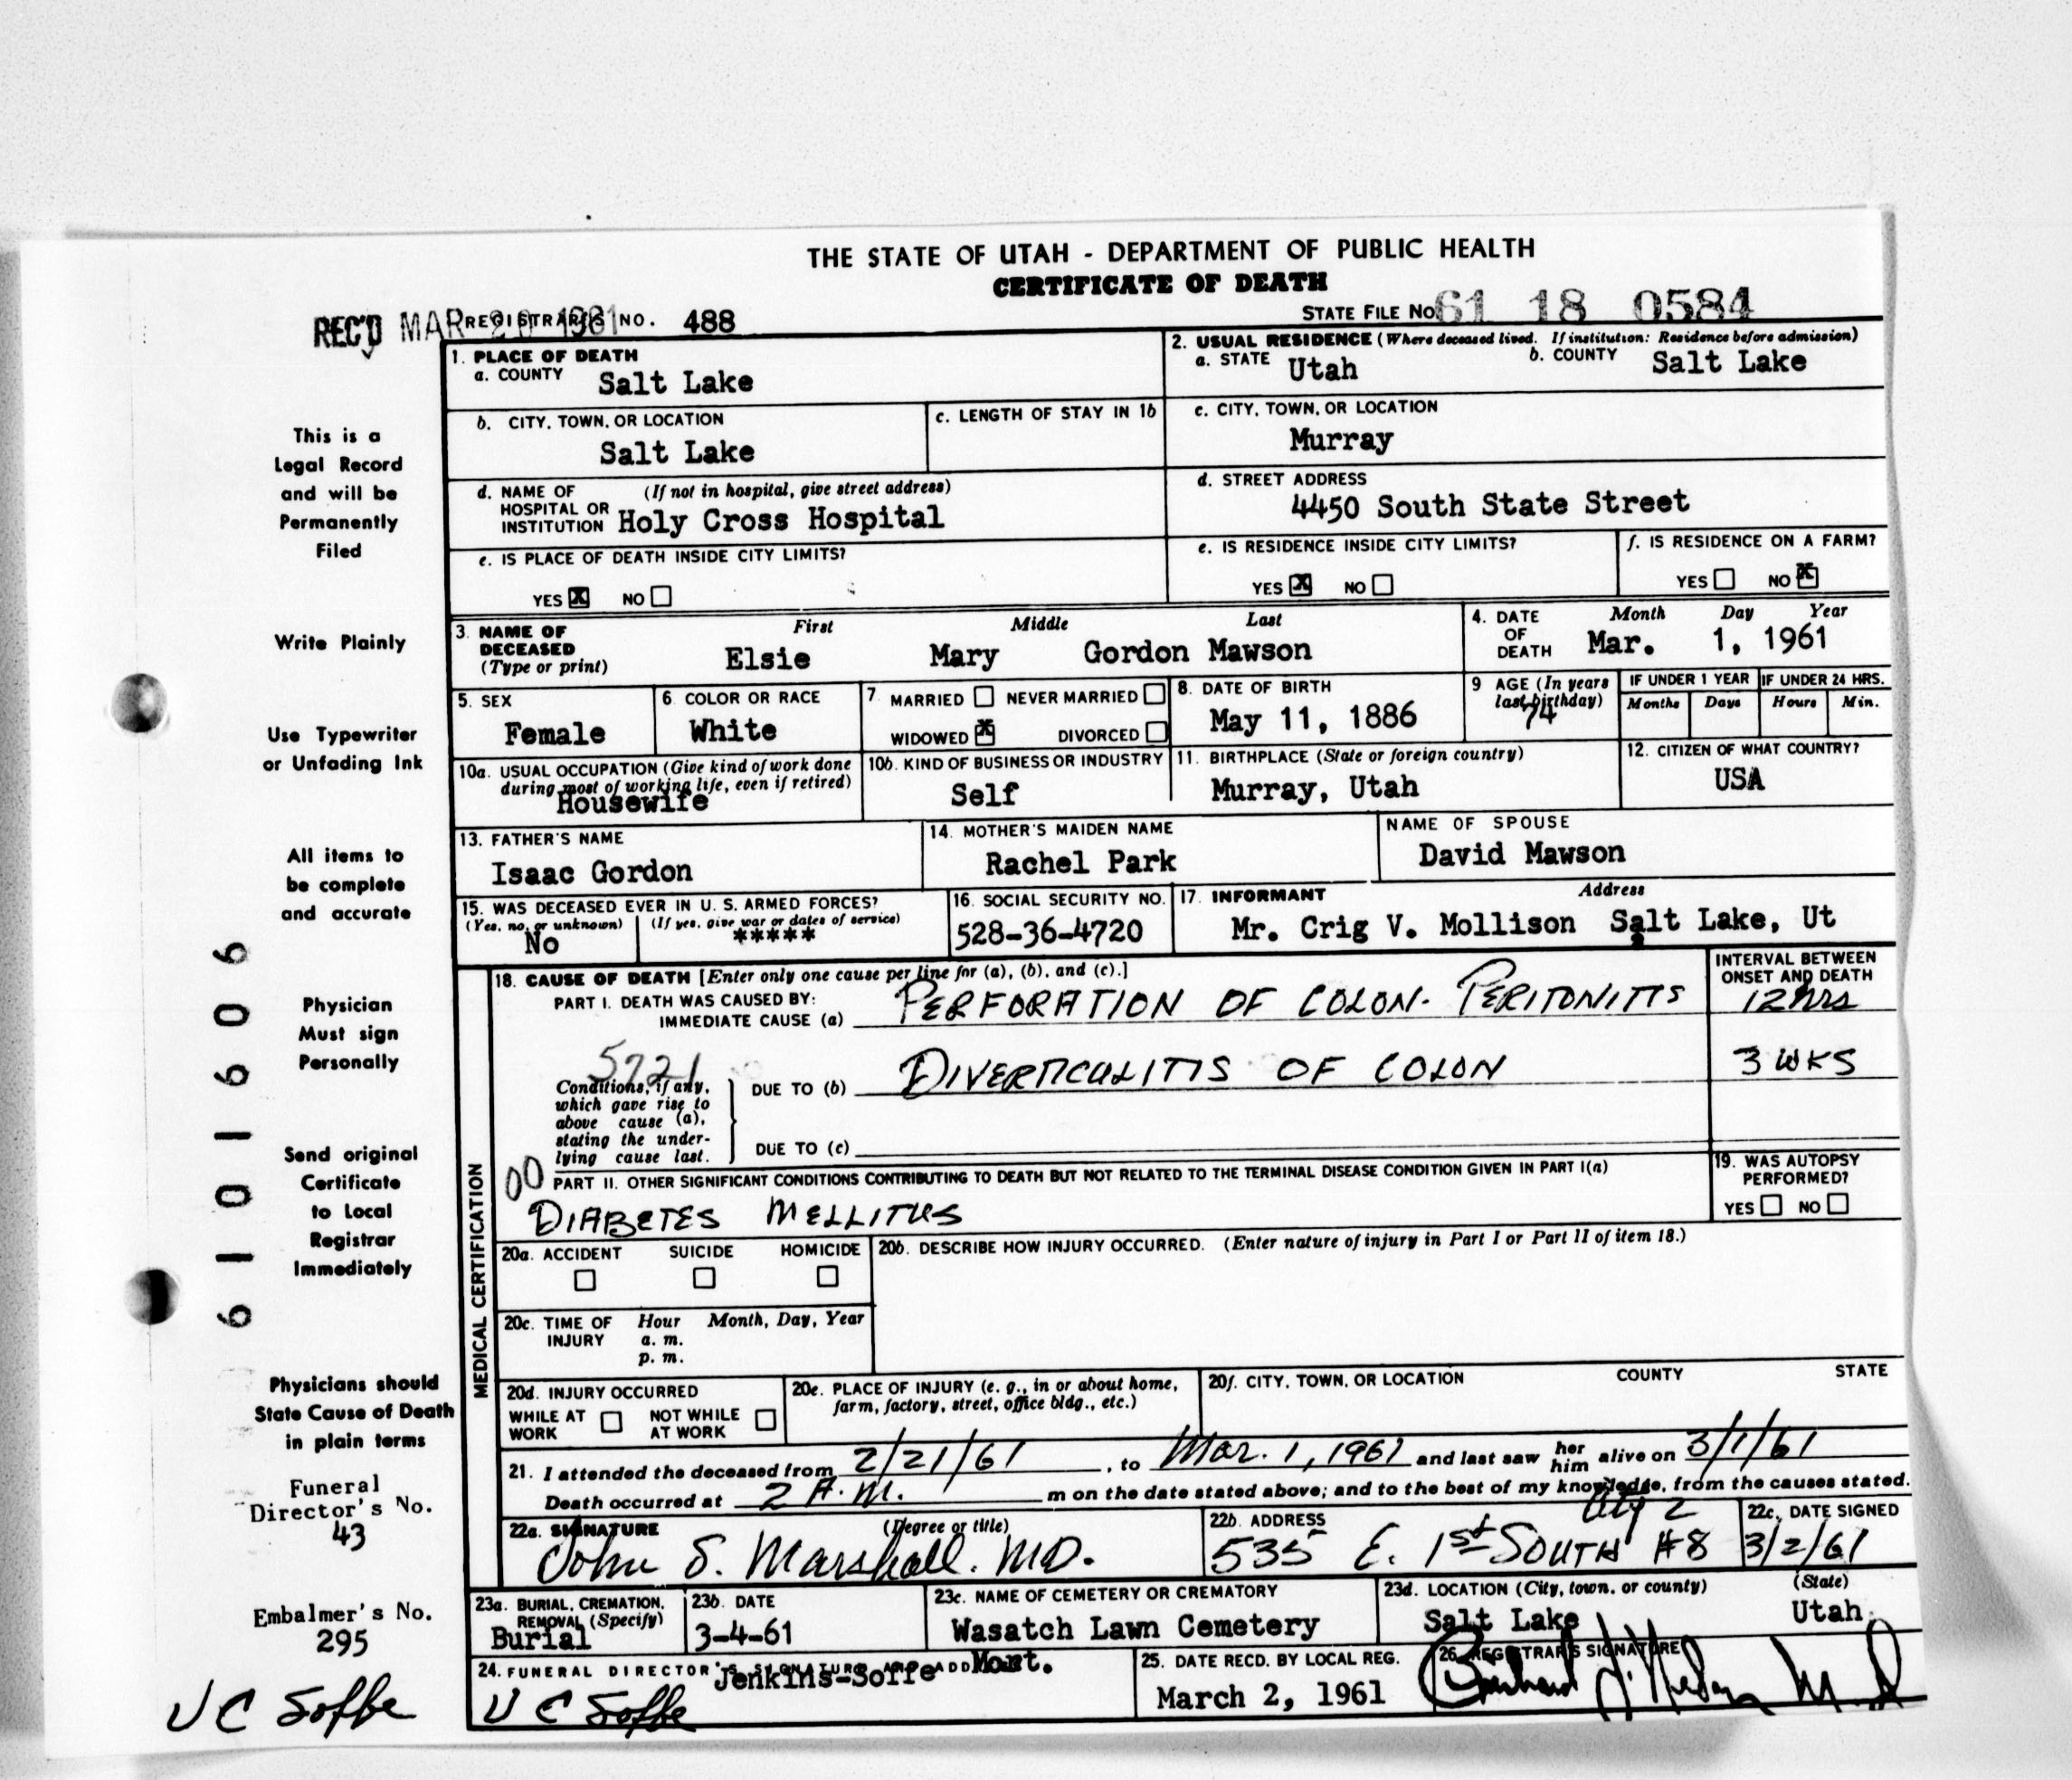 THE STATE OF UTAH - DEPARTMENT OF PUBLIC HEALTH
CERTIFICATE OF DEATH
REC'D MAR 20 1961 REGISTRAR'S NO. 488 STATE FILE NO. 61 18 0584
1. PLACE OF DEATH
a. COUNTY Salt Lake
2. USUAL RESIDENCE (Where deceased lived. If institution: Residence before admission)
a. STATE Utah b. COUNTY Salt Lake
b. CITY, TOWN, OR LOCATION Salt Lake
c. LENGTH OF STAY IN 1b
c. CITY, TOWN, OR LOCATION
Murray
d. NAME OF HOSPITAL OR INSTITUTION (If not in hospital, give street address)
Holy Cross Hospital
d. STREET ADDRESS
4450 South State Street
e. IS PLACE OF DEATH INSIDE CITY LIMITS?
YES X NO
e. IS RESIDENCE INSIDE CITY LIMITS?
YES X NO
f. IS RESIDENCE ON A FARM?
YES NO X
3. NAME OF DECEASED (Type or print)
First Middle Last
Elsie Mary Gordon Mawson
4. DATE OF DEATH Month Day Year
Mar. 1, 1961
5. SEX
Female
6. COLOR OR RACE
White
7. MARRIED NEVER MARRIED
WIDOWED X DIVORCED
8. DATE OF BIRTH
May 11, 1886
9 AGE (In years last birthday)
74
IF UNDER 1 YEAR IF UNDER 24 HRS.
Months Days Hours Min.
10a. USUAL OCCUPATION (Give kind of work done during most of working life, even if retired)
Housewife
10b. KIND OF BUSINESS OR INDUSTRY
Self
11. BIRTHPLACE (State or foreign country)
Murray, Utah
12. CITIZEN OF WHAT COUNTRY?
USA
13. FATHER'S NAME
Isaac Gordon
14. MOTHER'S MAIDEN NAME
Rachel Park
NAME OF SPOUSE
David Mawson
15. WAS DECEASED EVER IN U. S. ARMED FORCES?
(Yes, no, or unknown) (If yes, give war or dates of service)
No *****
16. SOCIAL SECURITY NO.
528-36-4720
17. INFORMANT Address
Mr. Crig V. Mollison Salt Lake, Ut
MEDICAL CERTIFICATION
18. CAUSE OF DEATH [Enter only one cause per line for (a), (b), and (c).]
INTERVAL BETWEEN ONSET AND DEATH
PART I. DEATH WAS CAUSED BY:
IMMEDIATE CAUSE (a) PERFORATION OF COLON- PERITONITIS 12 hrs
5721
Conditions, if any, which gave rise to above cause (a), stating the underlying cause last.
DUE TO (b) DIVERTICULITIS OF COLON 3 WKS
DUE TO (c)
00
PART II. OTHER SIGNIFICANT CONDITIONS CONTRIBUTING TO DEATH BUT NOT RELATED TO THE TERMINAL DISEASE CONDITION GIVEN IN PART I(a)
DIABETES MELLITUS
19. WAS AUTOPSY PERFORMED?
YES NO
20a. ACCIDENT SUICIDE HOMICIDE
20b. DESCRIBE HOW INJURY OCCURRED. (Enter nature of injury in Part I or Part II of item 18.)
20c. TIME OF INJURY Hour Month, Day, Year
a. m.
p. m.
20d. INJURY OCCURRED
WHILE AT WORK NOT WHILE AT WORK
20e. PLACE OF INJURY (e. g., in or about home, farm, factory, street, office bldg., etc.)
20f. CITY, TOWN, OR LOCATION COUNTY STATE
21. I attended the deceased from 2/21/61, to Mar. 1, 1961 and last saw her him alive on 3/1/61
Death occurred at 2 A.M. m on the date stated above; and to the best of my knowledge, from the causes stated.
22a. SIGNATURE (Degree or title)
John S. Marshall. MD.
22b. ADDRESS
535 E. 1st SOUTH #8 City 2
22c. DATE SIGNED
3/2/61
23a. BURIAL, CREMATION, REMOVAL (Specify)
Burial
23b. DATE
3-4-61
23c. NAME OF CEMETERY OR CREMATORY
Wasatch Lawn Cemetery
23d. LOCATION (City, town, or county) (State)
Salt Lake Utah
24. FUNERAL DIRECTOR'S SIGNATURE AND ADD
Jenkins-Soffe Mort.
V C Soffe
25. DATE RECD. BY LOCAL REG.
March 2, 1961
26. REGISTRAR'S SIGNATURE
This is a
Legal Record
and will be
Permanently
Filed
Write Plainly
Use Typewriter
or Unfading Ink
All items to
be complete
and accurate
Physician
Must sign
Personally
Send original
Certificate
to Local
Registrar
Immediately
Physicians should
State Cause of Death
in plain terms
Funeral
Director's No.
43
Embalmer's No.
295
V C Soffe
6 1 0 1 6 0 6